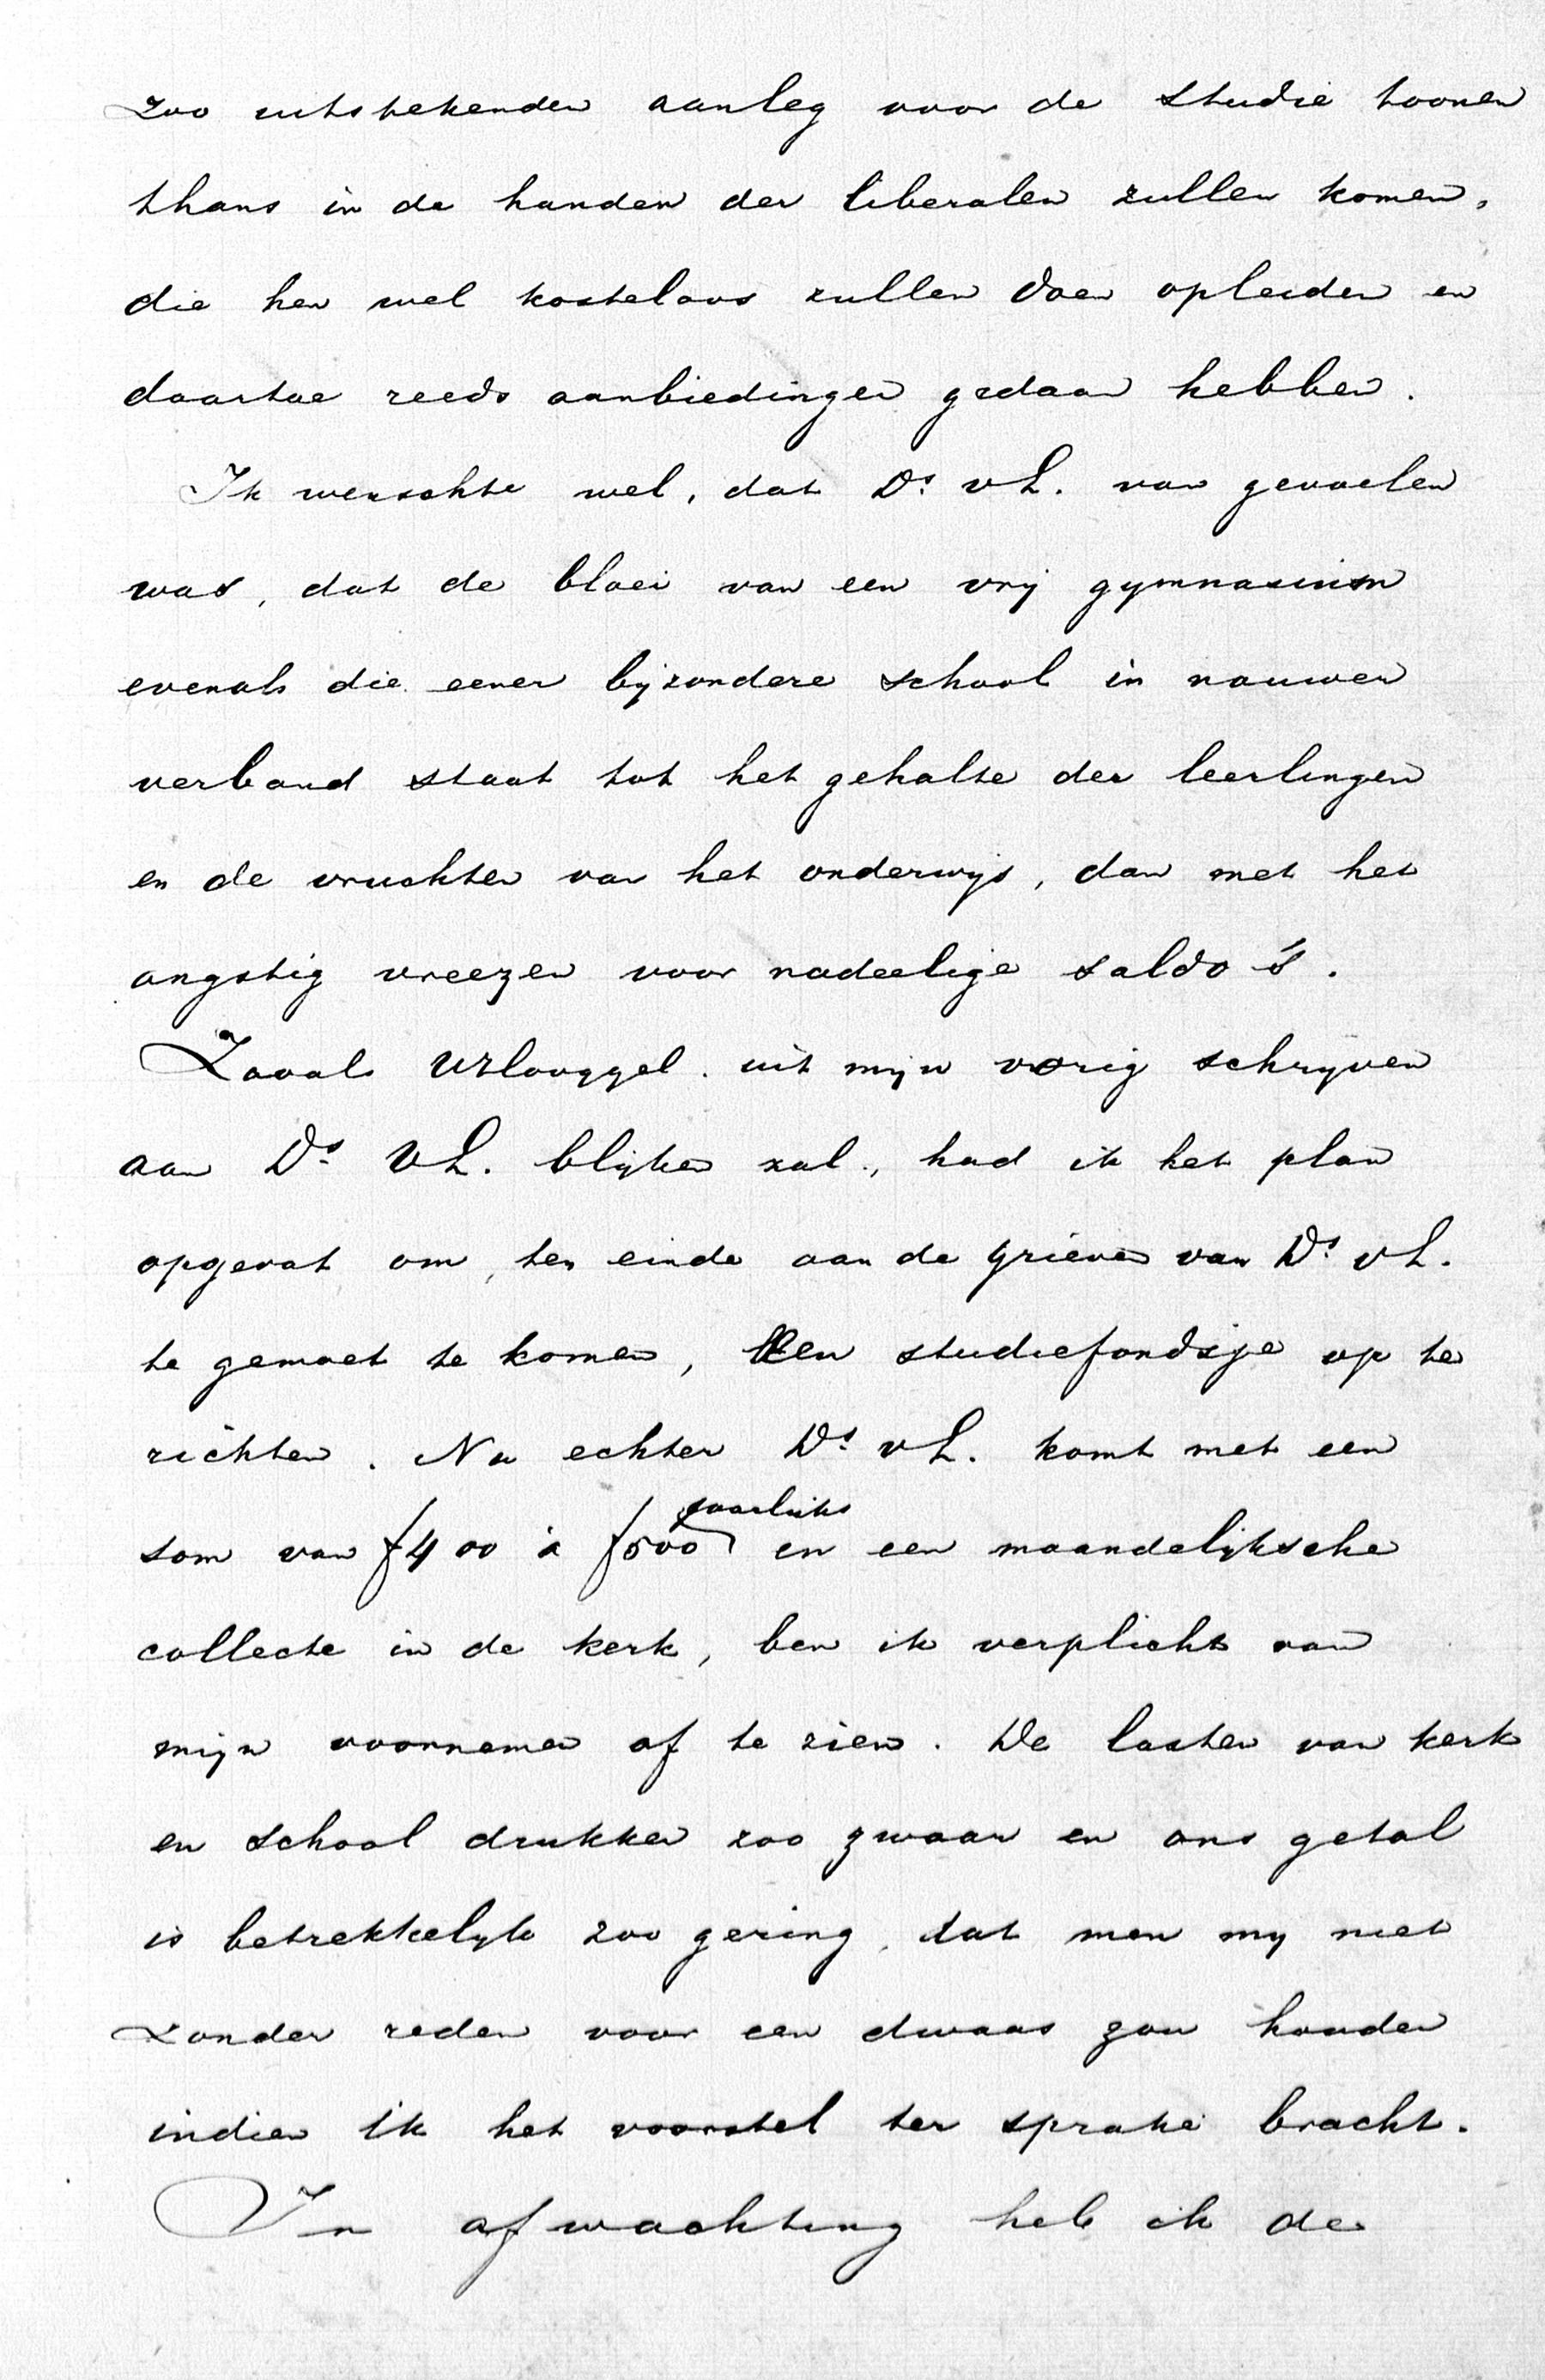 zoo uitstekenden aanleg voor de studie toonen
thans in de handen der liberalen zullen komen,
die hen wel kosteloos zullen doen opleiden en
daartoe reeds aanbiedingen gedaan hebben.
Ik wenschte wel, dat Ds. vL. van gevoelen
was, dat de bloei van een vrij gymnasium
evenals die eener bijzondere school in nauwer
verband staat tot het gehalte der leerlingen
en de vruchten van het onderwijs, dan met het
angstig vreezen voor nadeelige saldo's.
Zooals UHooggel. uit mijn vorig schrijven
aan Ds. VL. blijken zal, had ik het plan
opgevat om, ten einde aan de grieven van Ds. vL.
te gemoet te komen, een studiefondsje op te
richten. Nu echter Ds. vL. komt met een
jaarlijks
som van f400 à f500 en een maandelijksche
collecte in de kerk, ben ik verplicht van
mijn voornemen af te zien. De lasten van kerk
en school drukken zoo zwaar en ons getal
is betrekkelijk zoo gering, dat men mij niet
zonder reden voor een dwaas zou houden
indien ik het voorstel ter sprake bracht.
In afwachting heb ik de